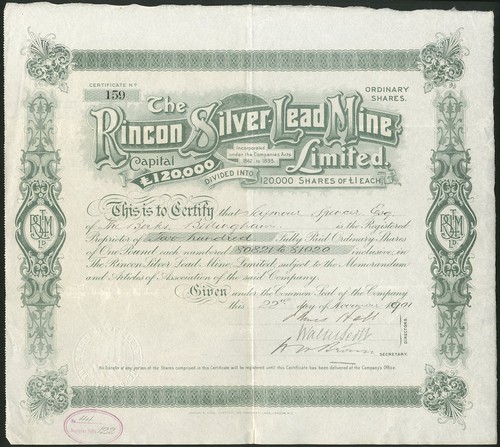 CERTIFICATE Nº
159
ORDINARY
SHARES.
The
Rincon Silver Lead Mine
Limited.
Capital
£120,000
Incorporated
under the Companies Acts
1862 to 1893.
DIVIDED INTO
120,000 SHARES OF £1 EACH.
This is to Certify that Seymour Spencer Esq
of The Becks, is the Registered
Proprietor of Two hundred Fully Paid Ordinary Shares
of One Pound each numbered 80821 to 81020 inclusive, in
The Rincon Silver Lead Mine, Limited, subject to the Memorandum
and Articles of Association of the said Company.
Given under the Common Seal of the Company
this 22nd day of November 1901
DIRECTORS
SECRETARY.
No transfer of any portion of the Shares comprised in this Certificate will be registered until this Certificate has been delivered at the Company's Office.
LD.
LD.